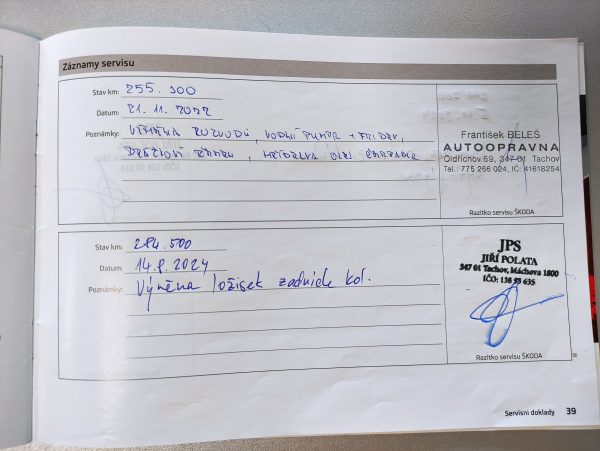 Záznamy servisu
Stav km: 255.300
Datum: 21.11.2022
Poznámky: VÝMĚNA ROZVODŮ, VODNÍ PUMPA + FRIDEX,
František BĚLEŠ
AUTOOPRAVNA
Oldřichov 69, 347 01 Tachov
Tel.: 775 266 024, IČ: 41618254
Razítko servisu ŠKODA
Stav km: 284.500
Datum: 14.8.2024
Poznámky: Výměna ložisek zadních kol.
JPS
JIŘÍ POLATA
347 01 Tachov, Máchova 1800
IČO: 138 53 635
Razítko servisu ŠKODA
Servisní doklady 39